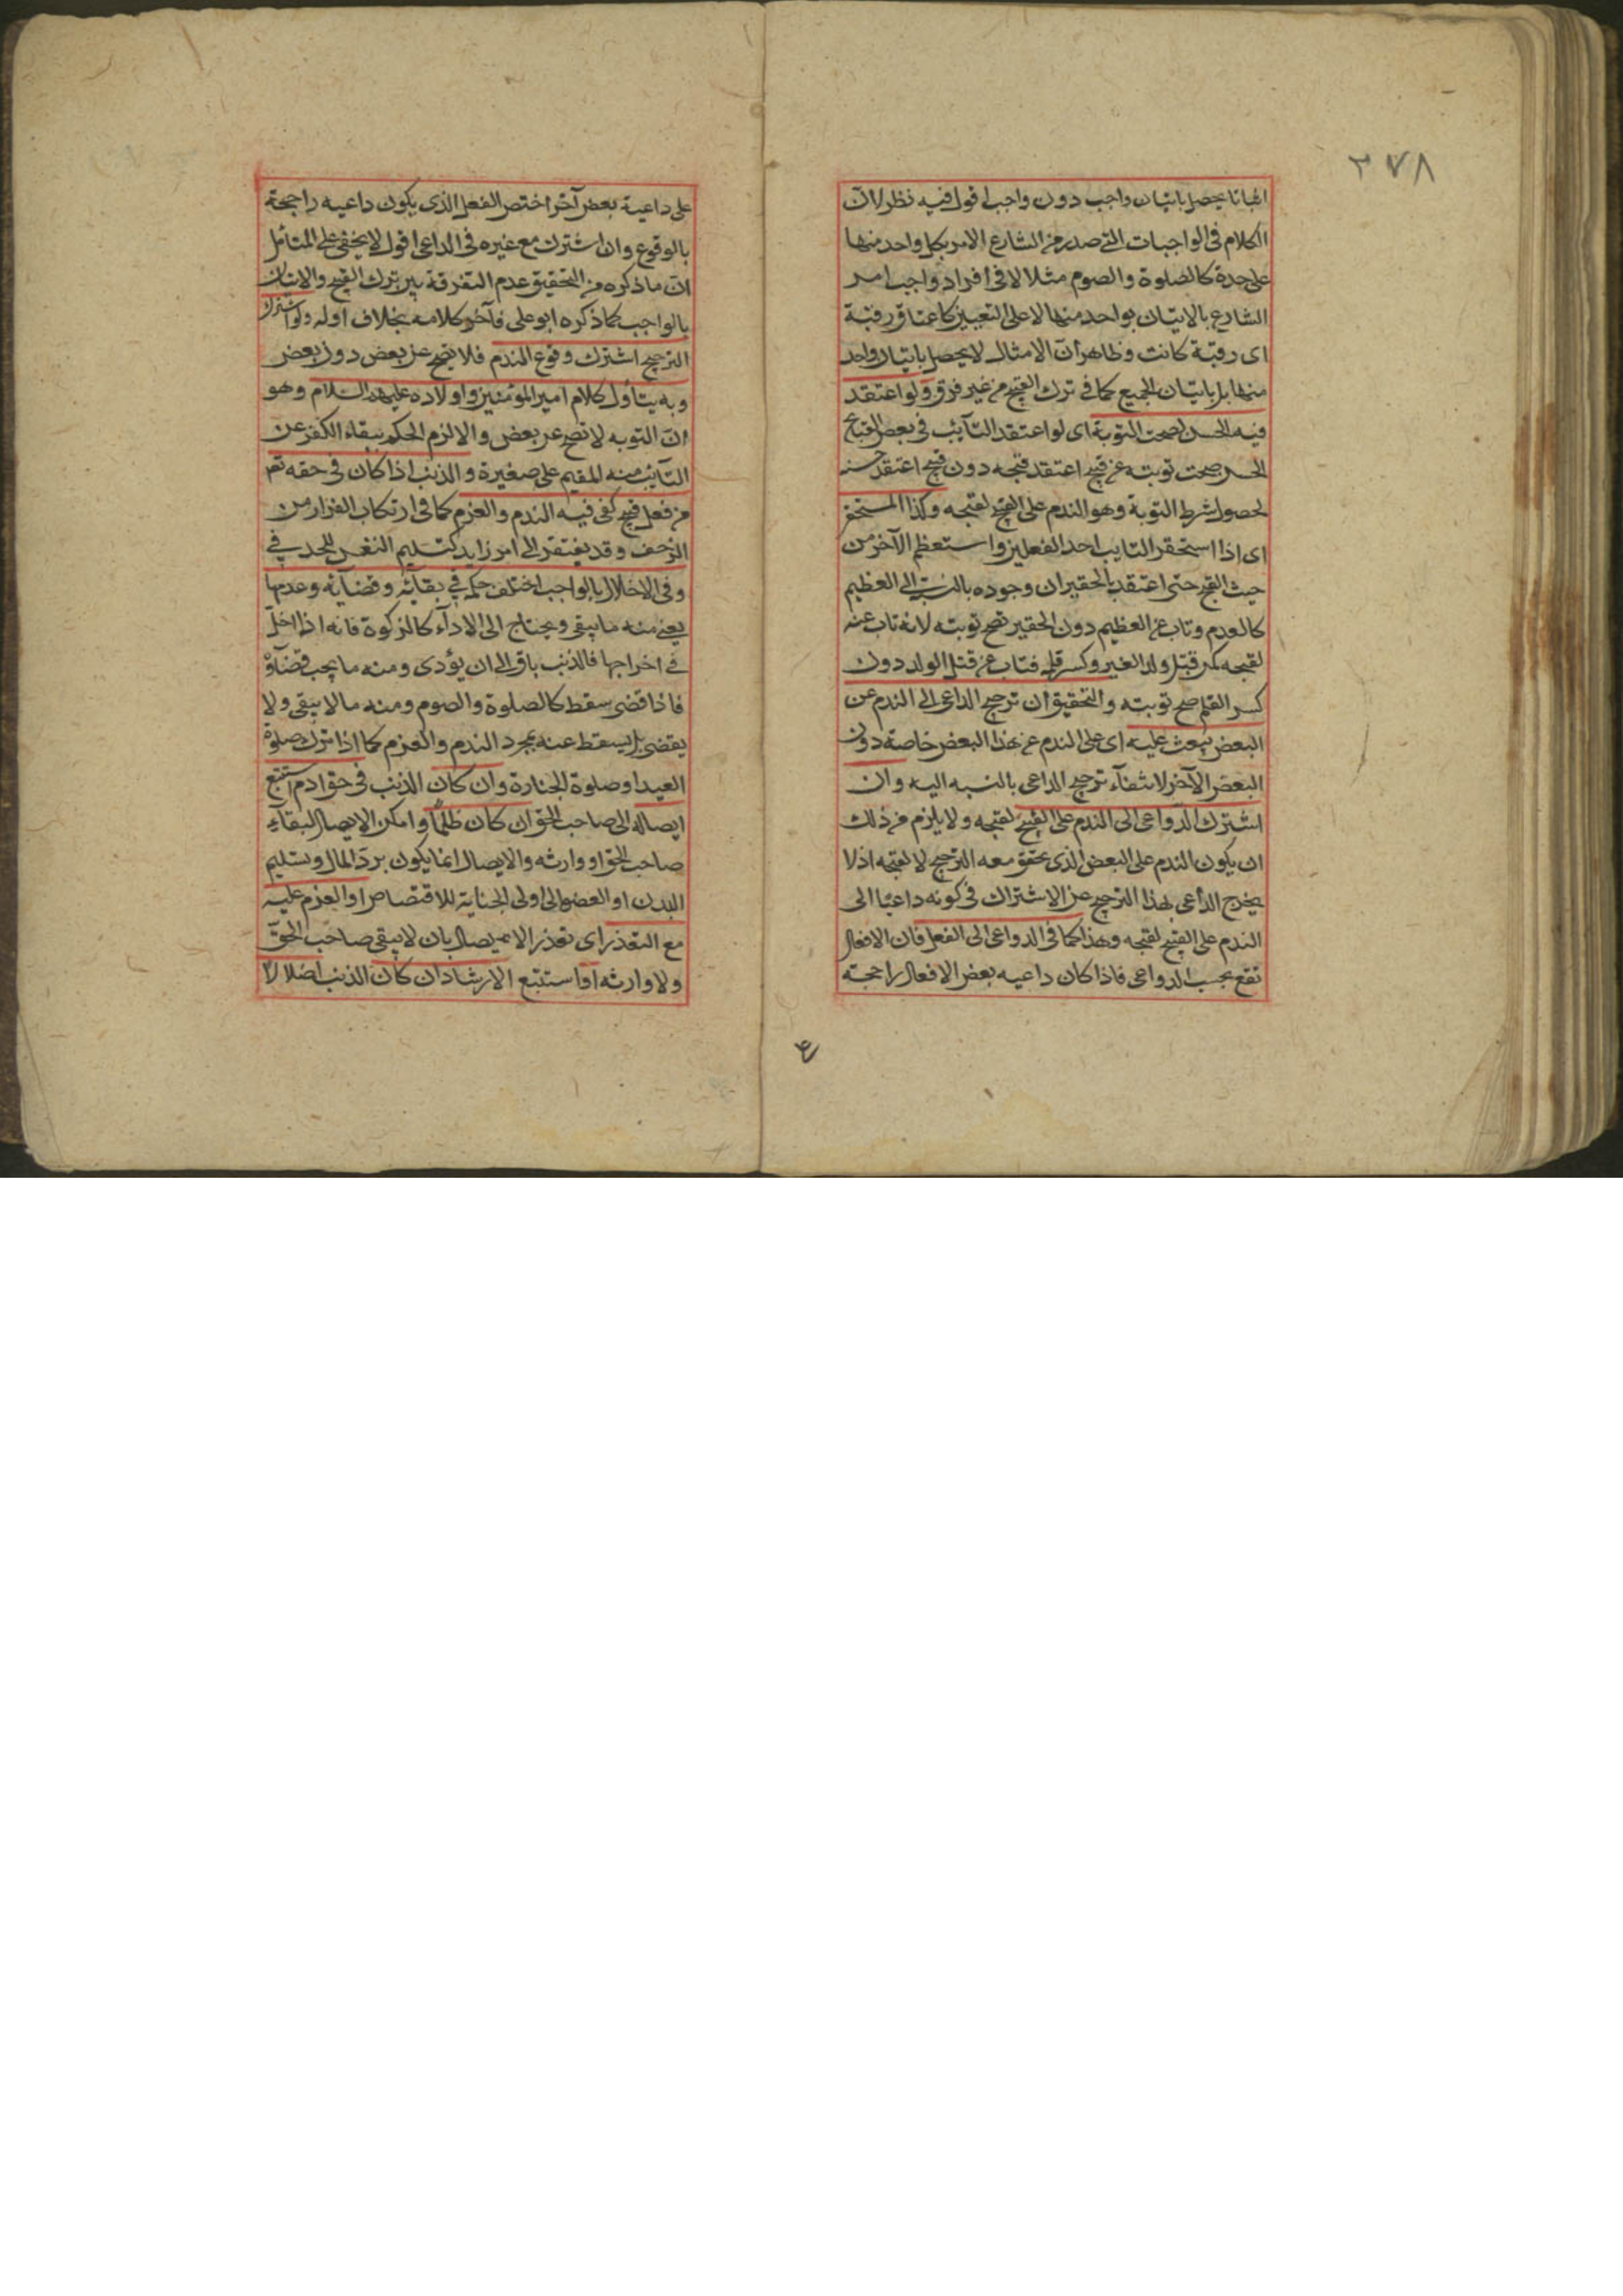 ٣٧٨
اتيانا يحصل باتيان واجب دون واجب اقول فيه نظر لان
الكلام فى الواجبات التى صدر من الشارع الامر بكل واحد منها
على حدة كالصلوة والصوم مثلا لا فى افراد واجب امر
الشارع بالاتيان بواحد منها لا على التعيين كاعتاق رقبة
اى رقبة كانت وظاهر ان الامثال لا يحصل باتيان واحد
منها بل باتيان الجميع كما فى ترك القبيح من غير فرق ولو اعتقد
فيه الحسن لصحت التوبة اى لو اعتقد التائب فى بعض القبائح
الحسن صحت توبته عن قبيح اعتقد قبحه دون قبيح اعتقد حسنه
لحصول شرط التوبة وهو الندم على القبيح لقبحه وكذا المستحقر
اى اذا استحقر التايب احد الفعلين واستعظم الآخر من
حيث القبح حتى اعتقد بالحقير ان وجوده بالنسبة الى العظيم
كالعدم وتاب عن العظيم دون الحقير تصح توبته لانه تاب عنه
لقبحه كمن قتل ولد الغير وكسر قلمه فتاب عن قتل الولد دون
كسر القلم صح توبته والتحقيق ان ترجيح الداعى الى الندم عن
البعض يبعث عليه اى على الندم عن هذا البعض خاصة دون
البعض الآخر لانتفاء ترجيح الداعى بالنسبه اليه وان
اشترك الدواعى الى الندم على القبيح لقبحه ولا يلزم من ذلك
ان يكون الندم على البعض الذى تحقق معه الترجيح لا لقبحه اذ لا
يخرج الداعى بهذا الترجيح عن الاشتراك فى كونه داعيا الى
الندم على القبيح لقبحه وهذا كما فى الدواعى الى الفعل فان الافعال
تقع بحسب الدواعى فاذا كان داعيه بعض الافعال راجحة
ع
على داعية بعض آخر اختص الفعل الذى يكون داعيه راجحة
بالوقوع وان اشترك مع غيره فى الداعى اقول لا يخفى على المتأمل
ان ما ذكره من التحقيق عدم التفرقة بين ترك القبيح والاتيان
بالواجب كما ذكره ابو على فآخر كلامه بخلاف اوله ولو اشترك
الترجيح اشترك وقوع الندم فلا يصح عن بعض دون بعض
وبه يتأول كلام امير المؤمنين واولاده عليهم السلام وهو
ان التوبه لا تصح عن بعض والا لزم الحكم ببقاء الكفر عن
التائب منه المقيم على صغيرة والذنب اذا كان فى حقه تعم
من فعل قبيح كفى فيه الندم والعزم كما فى ارتكاب الفرار من
الزحف وقد يفتقر الى امر زايد كتسليم النفس للحد فى
وفى الاخلال بالواجب اختلف حكمه فى بقائه وقضائه وعدمها
يعنى منه ما يبقى ويحتاج الى الاداء كالزكوة فانه اذا اخل
فى اخراجها فالذنب باق الى ان يؤدى ومنه ما يجب قضاؤه
فاذا قضى سقط كالصلوة والصوم ومنه ما لا يبقى ولا
يقضى بل يسقط عنه بمجرد الندم والعزم كما اذا ترك صلوة
العيد او صلوة الجنازة وان كان الذنب فى حق ادم استتبع
ايصاله الى صاحب الحق ان كان ظلما وامكن الايصال لبقاء
صاحب الحق او وارثه والايصال انما يكون برد المال وتسليم
البدن او العضو الى اولى الجناية للاقتصاص او العزم عليه
مع التعذر اى تعذر الايصال بان لا يبقى صاحب الحق
ولا وارثه او استتبع الارشاد ان كان الذنب اضلالا